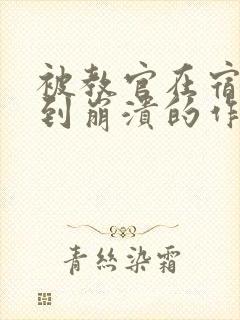 被教官在宿
到崩溃的作
青丝染霜